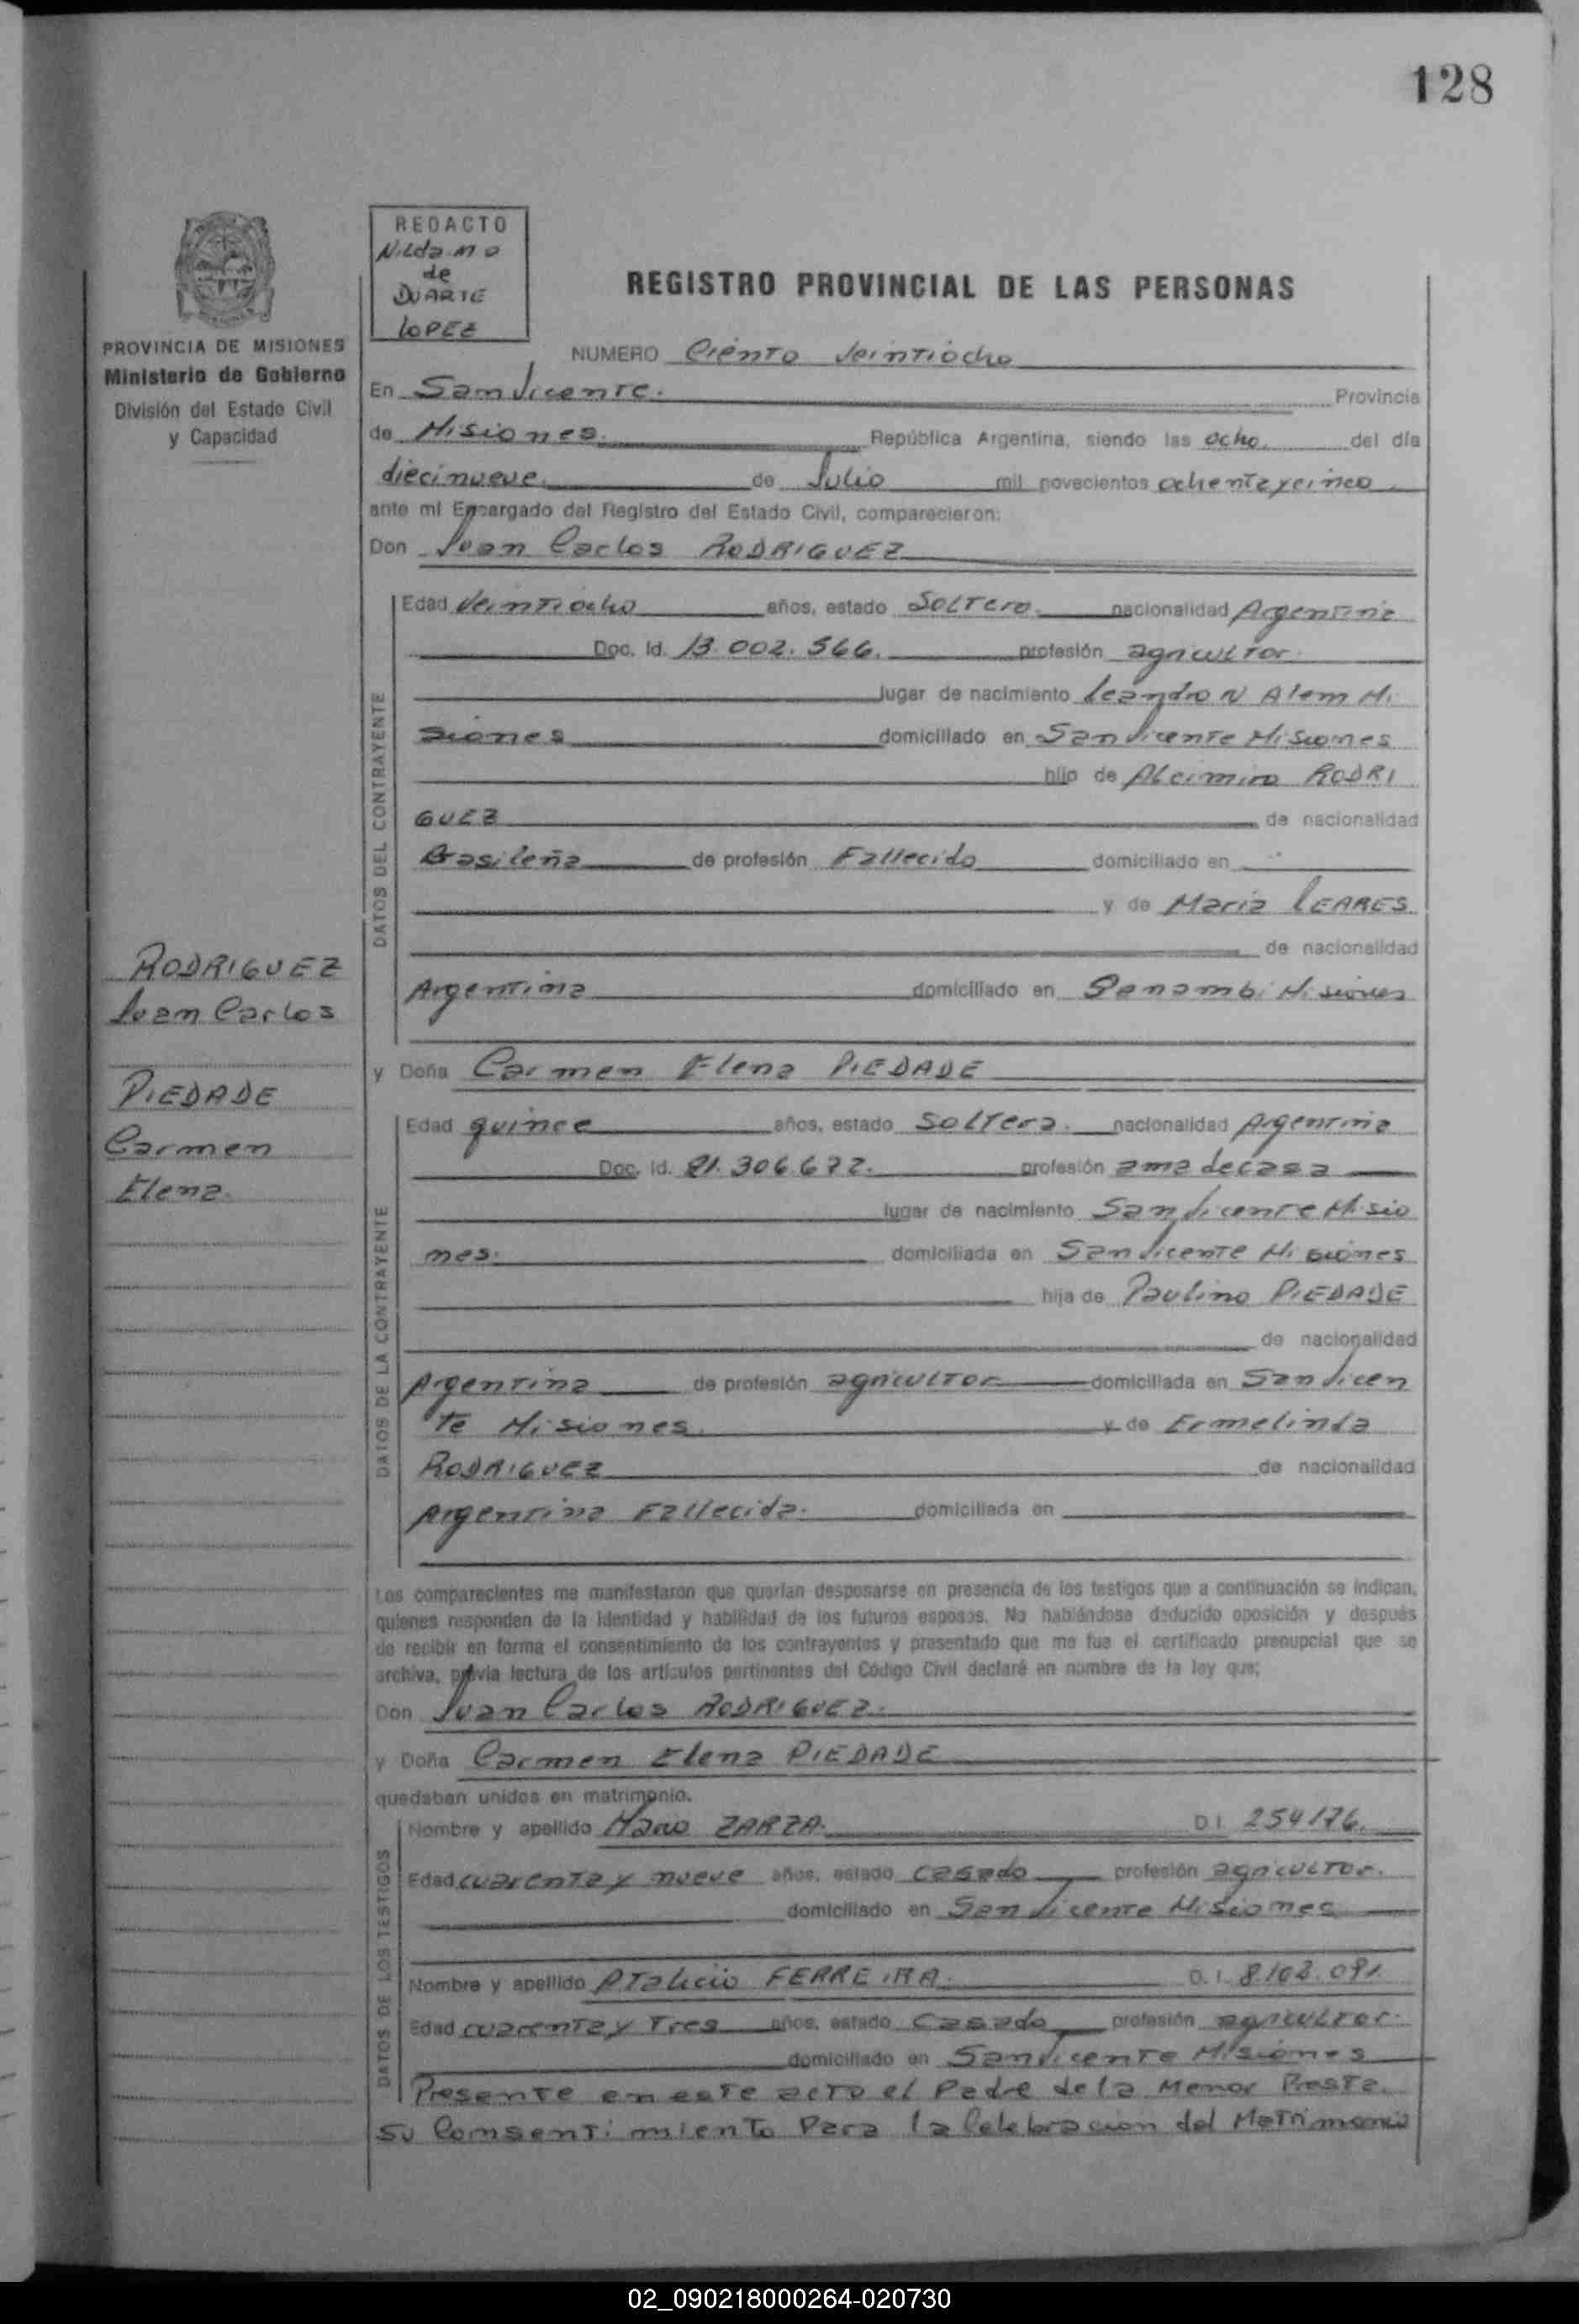 128
REDACTO
Nilda M
de
DUARTE
LOPEZ
REGISTRO PROVINCIAL DE LAS PERSONAS
PROVINCIA DE MISIONES
Ministerio de Gobierno
División del Estado Civil
y Capacidad
NUMERO Ciento Veintiocho
En San Vicente. Provincia
de Misiones. República Argentina, siendo las ocho. del día
diecinueve de Julio mil novecientos ochenta y cinco
ante mi Encargado del Registro del Estado Civil, comparecieron:
Don Juan Carlos RODRIGUEZ
DATOS DEL CONTRAYENTE
Edad Veintiocho años, estado Soltero. nacionalidad Argentina
Doc. Id. 13.002.566. profesión agricultor.
lugar de nacimiento Leandro N Alem Mi
siones domiciliado en San Vicente Misiones
hijo de Alcimiro RODRI
GUEZ de nacionalidad
Brasileña de profesión Fallecido domiciliado en
y de Maria LEARES
de nacionalidad
Argentina domiciliado en Panambi Misiones
RODRIGUEZ
Juan Carlos
PIEDADE
Carmen
Elena.
y Doña Carmen Elena PIEDADE
DATOS DE LA CONTRAYENTE
Edad quince años, estado Soltera. nacionalidad Argentina
Doc. Id. 21.306.672. profesión ama de casa
lugar de nacimiento San Vicente Misio
nes. domiciliada en San Vicente Misiones
hija de Paulino PIEDADE
de nacionalidad
Argentina de profesión agricultor domiciliada en San Vicen
te Misiones. y de Ermelinda
RODRIGUEZ de nacionalidad
Argentina Fallecida. domiciliada en
Los comparecientes me manifestaron que querían desposarse en presencia de los testigos que a continuación se indican,
quienes responden de la identidad y habilidad de los futuros esposos. No habiéndose deducido oposición y después
de recibir en forma el consentimiento de los contrayentes y presentado que me fue el certificado prenupcial que se
archiva, previa lectura de los artículos pertinentes del Código Civil declaré en nombre de la ley que;
Don Juan Carlos RODRIGUEZ.
y Doña Carmen Elena PIEDADE
quedaban unidos en matrimonio.
DATOS DE LOS TESTIGOS
Nombre y apellido Mario ZARZA. D.I. 254176.
Edad cuarenta y nueve años, estado casado profesión agricultor.
domiciliado en San Vicente Misiones
Nombre y apellido Atalicio FERREIRA. D.I. 8.102.091.
Edad cuarenta y Tres años, estado Casado profesión agricultor.
domiciliado en San Vicente Misiones
Presente en este acto el Padre de la Menor Presta
su Consentimiento Para la Celebracion del Matrimonio
02_090218000264-020730